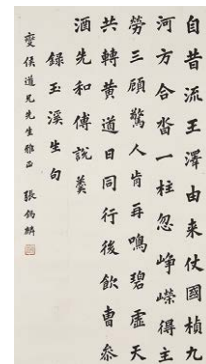 自昔流王澤由来仗國楨九
河方合沓一柱忽崢嶸得主
勞三顧驚人肯再鳴碧虛天
共轉黃道日同行後飲曹參
酒先和傅說羹
錄玉溪生句
燮侯道兄先生雅正 張鈞麟